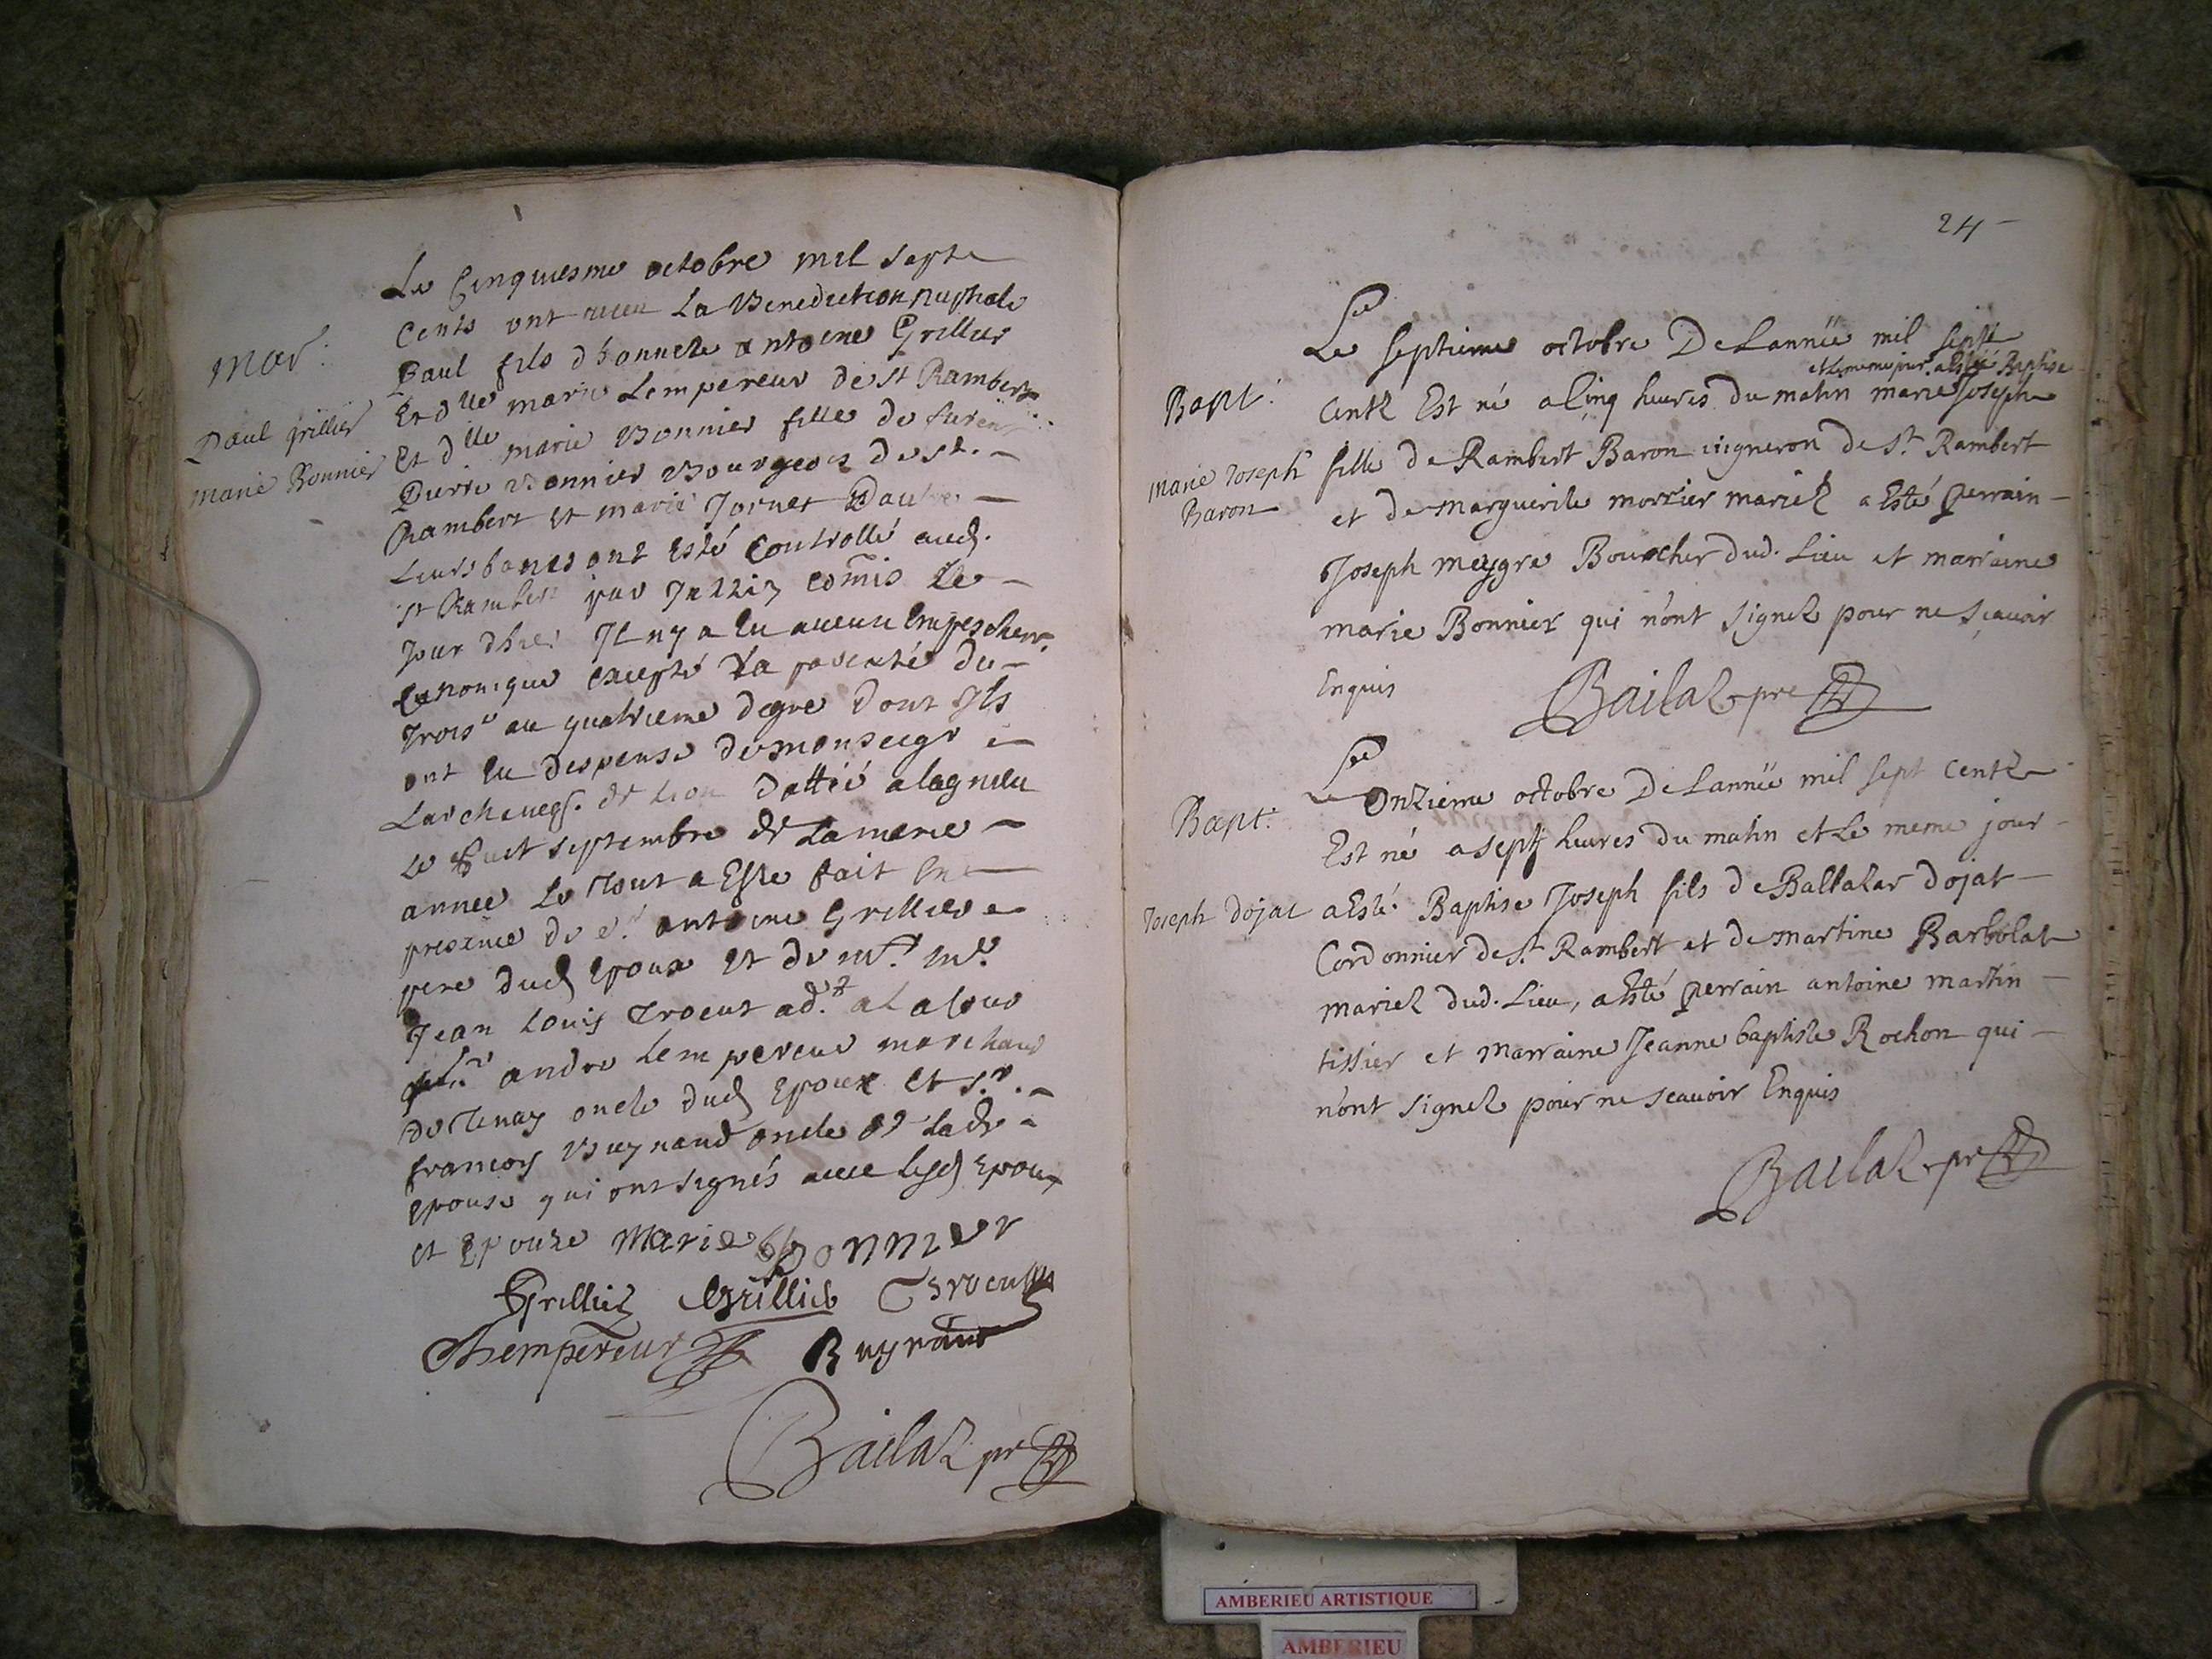 Mar:
Paul grillier
marie Bonnier
Le Cinquiesme octobre mil septe
Cents ont receu La Benediction nuptiale
Paul fils dhonnete antoine Grillier
Et dlle marie Lempereur de St Rambert
Et dlle marie Bonnier fille de
Pierre Bonnier Bourgeois de st.
Rambert et marie Jornet
Leurs bancs ont esté Controllé aud.
St Rambert par comis le
Jour dhier Il ny a eu aucun empeschemt
Canonique excepté La parenté du
trois au quatrieme degre dont Ils
ont eu despense de monseigr
Larcheueq. de Lion dattée a lagnieu
le huit septembre de La meme
annee Le tout a Este fait En
presence de antoine Grillier
pere dud Epoux Et de me
Jean Louis Trocut ad.t a La Cour
andre Lempereur marchand
de Tenay oncle dud Epoux Et Sr.
francois Buynand oncle de Lade
Epouse qui ont signés auec lesd Epoux
et Epouze Marie bonnier
Grillier Grillier Trocut
Lempereur Buynand
Bailat pre
24
Bapt.
marie Joseph
Baron
Le septieme octobre De Lannëe mil septe
et Le meme jour a Esté Baptise
Centz Est né a Cinq heures du matin marie Joseph
fille de Rambert Baron vigneron de St. Rambert
et de marguerite morrier mariez a Esté perrain
Joseph meygre Boucher dud. Lieu et marraine
marie Bonnier qui n'ont signez pour ne sçauoir
Enquis
Bailat pre
Bapt.
Joseph dojat
Le Onzieme octobre De Lannëe mil sept Centz
Est né a sept heures du matin et Le meme jour
a Esté Baptise Joseph fils de Baltazar dojat
Cordonnier de St. Rambert et de martine Barbolat
mariez dud. Lieu, a Esté perrain antoine martin
tissier et marraine Jeanne baptiste Rochon qui
n'ont signez pour ne scauoir Enquis
Bailat pre
AMBERIEU ARTISTIQUE
AMBERIEU